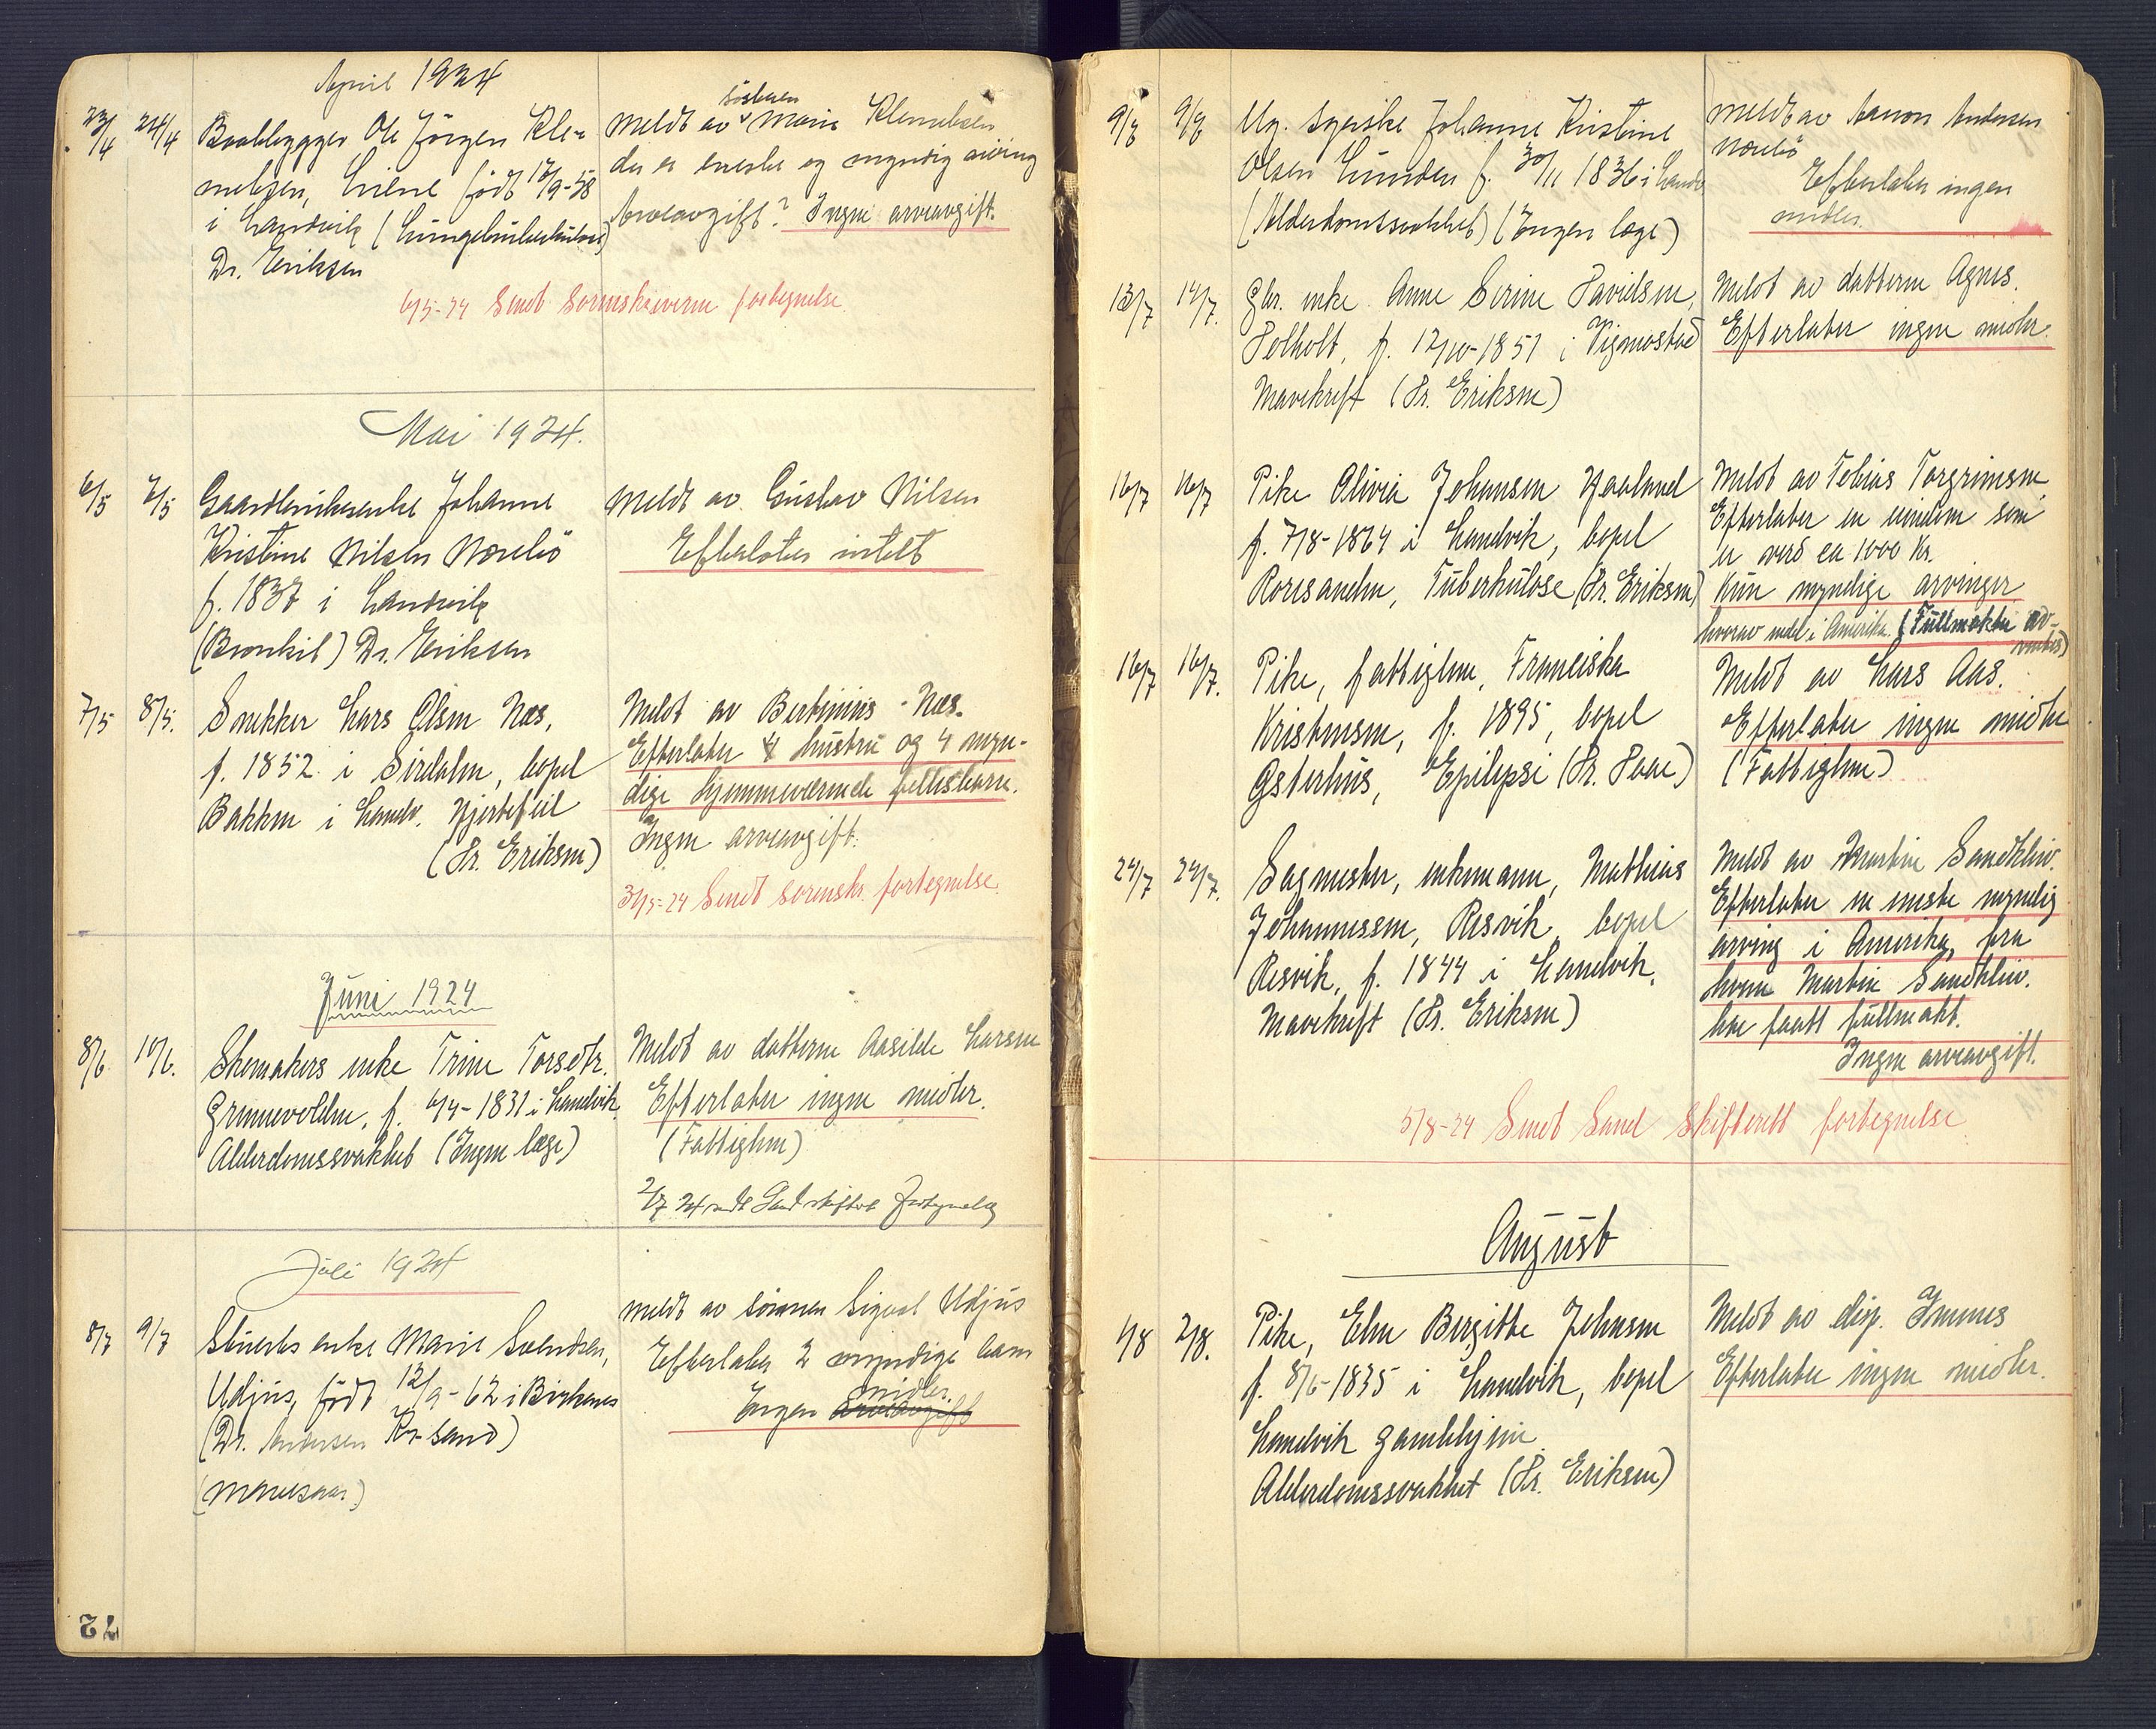 April 1924
23/4 24/4 Baatbygger Ole Jörgen Kle-
metsen, Liene födt 12/9-58
i Landvik (Lungetuberkulose)
Dr. Eriksen
Meldt av søsteren Marie Klemetsen
der er eneste og myndig arving
Arveavgift? Ingen arveavgift.
6/5-24 Sendt Sorenskriveren fortegnelse.
Mai 1924.
6/5 7/5 Gaardbrukerenke Johanne
Kristine Nilsen Morebö
f. 1837 i Landvik
(Bronkit) Dr. Eriksen
Meldt av Gustav Nilsen
Efterlater intet
7/5 8/5. Snekker Lars Olsen Næs,
f. 1852 i Sirdalen, bopel
Bakken i Landv. Hjertefeil
(Dr. Eriksen)
Meldt av Bertinius Næs.
Efterlater hustru og 4 myn-
dige hjemmeværende fellesbarn.
Ingen arveavgift.
31/5-24 Sendt sorenskr. fortegnelse.
Juni 1924
8/6 10/6. Skomakers enke Trine Torsdtr.
Grunnevolden, f. 6/4-1831 i Landvik.
Alderdomssvakhet (Ingen læge)
Meldt av datteren Aasilde Larsen
Efterlater ingen midler.
(Fattiglem)
2/7 24 sendt Sand skifteret fortegnelse
Juli 1924
8/7 9/7 Stuerts enke Marie Svendsen,
Udjus, födt 12/9-62 i Birkenes
(Dr. Andersen Kr.sand)
(Mavesaar)
Meldt av sönnen Sigval Udjus
Efterlater 2 myndige barn
midler.
Ingen arveavgift
72
9/7 9/7 Ug. syerske Johanne Kristine
Olsen Lunden f. 30/11 1836 i Landv
(Alderdomssvakhet) (Ingen læge)
Meldt av Aanon Andersen
Morebö
Efterlater ingen
midler.
13/7 14/7. Gbr. enke Anne Serine Davidsen,
Dolholt, f. 12/10-1851 i Vigmostad
Mavekreft (Dr. Eriksen)
Meldt av datteren Agnes.
Efterlater ingen midler.
16/7 16/7 Pike Olivia Johansen Haaland
f. 7/8-1864 i Landvik, bopel
Roresanden, Tuberkulose (Dr. Eriksen)
Meldt av Tobias Torgrimsen
Efterlater en eiendom som
er verd ca 1000 Kr.
Kun myndige arvinger
hvorav endel i Amerika. (Fullmakter av-
ventes)
16/7 16/7. Pike, fattiglem, Franciska
Kristensen, f. 1895, bopel
Østerhus, Epilepsi (Dr. Hoae)
Meldt av Lars Aas.
Efterlater ingen midler
(Fattiglem)
24/7 24/7. Sagmester, enkemann, Mathias
Johannessen, Resvik, bopel
Resvik, f. 1844 i Landvik.
Mavekreft (Dr. Eriksen)
Meldt av Martin Sandkleiv.
Efterlater en eneste myndig
arving i Amerika, fra
hvem Martin Sandkleiv.
har faatt fullmakt.
Ingen arveavgift.
5/8-24 Sendt Sand Skifterett fortegnelse
August
1/8 2/8. Pike, Elen Birgitte Johnsen
f. 8/6-1835 i Landvik, bopel
Landvik gamlehjem.
Alderdomssvakhet (Dr. Eriksen)
Meldt av disp. Immes
Efterlater ingen midler.